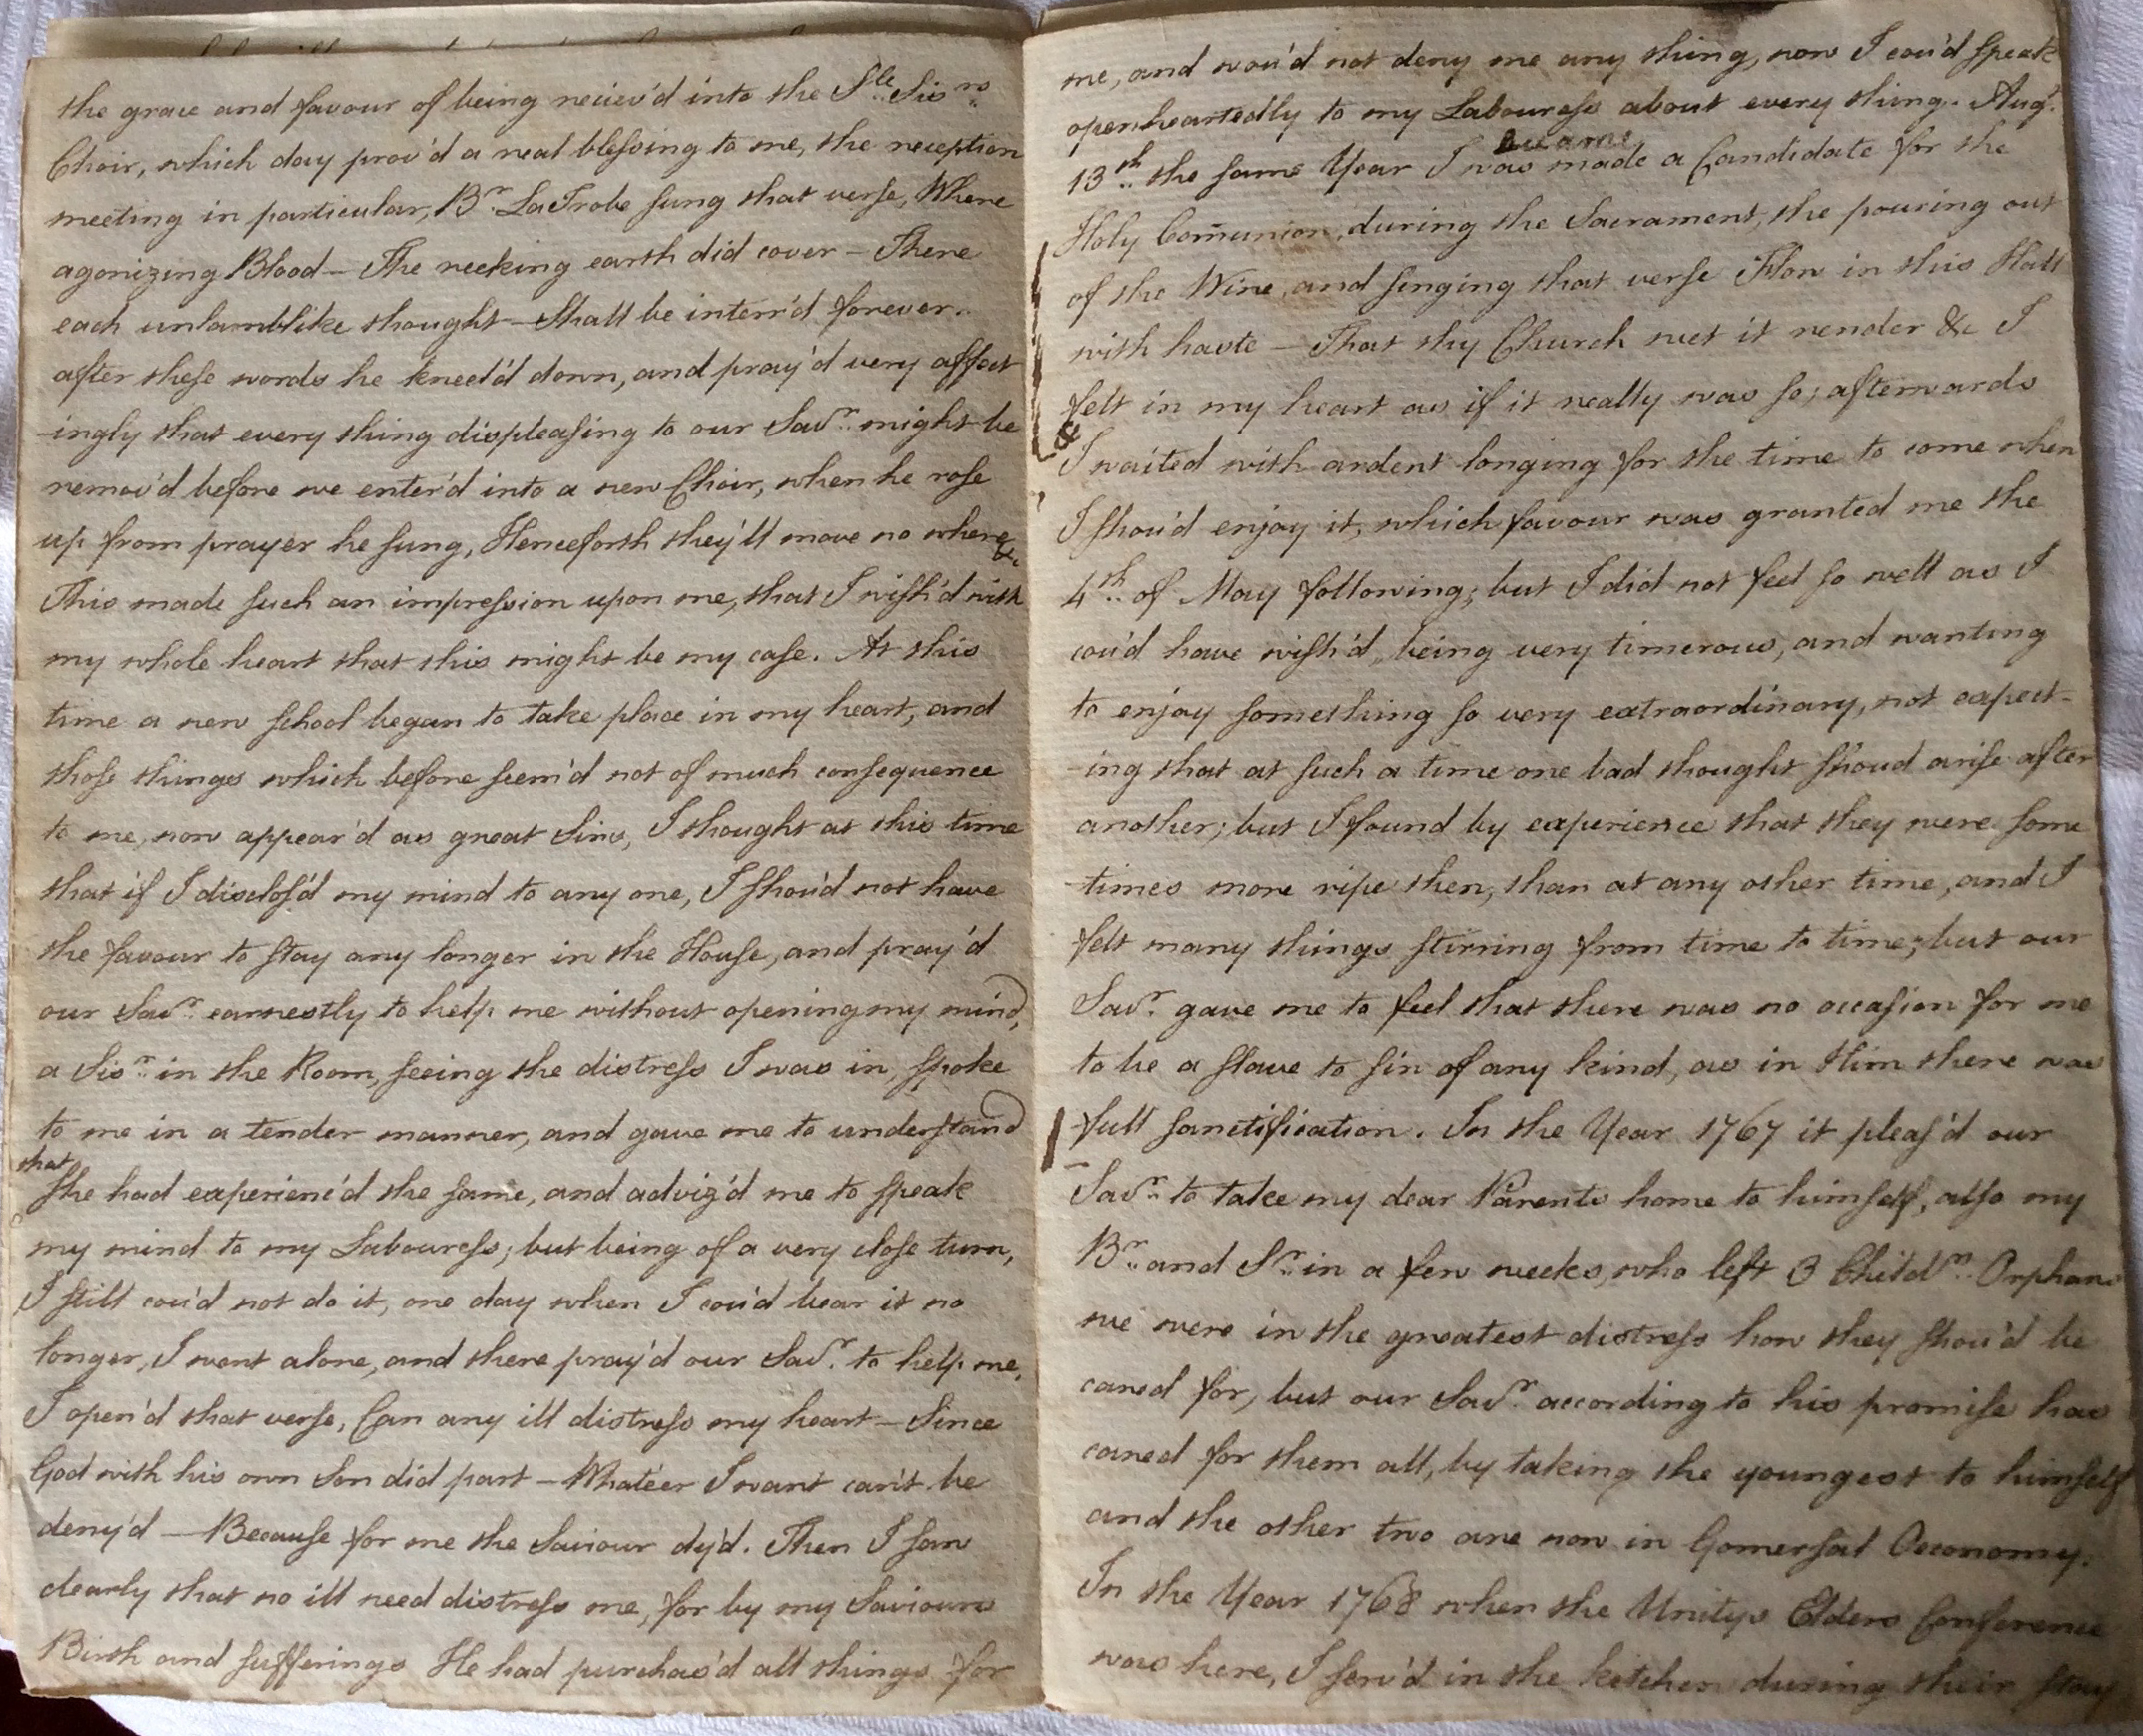 the grace and favour of being reciev'd into the Sle. Sisrs.
Choir, which day prov'd a real blessing to me, the reception
meeting in particular, Br. LaTrobe sung that verse, Where
agonizing Blood — The reeking earth did cover — There
each unlamblike thought — Shall be interr'd forever.
after these words he kneel'd down, and pray'd very affect
-ingly that every thing displeasing to our Savr. might be
remov'd before we enter'd into a new Choir, when he rose
up from prayer he sung, Henceforth they'll move no where &c
This made such an impression upon me, that I wish'd with
my whole heart that this might be my case. At this
time a new school began to take place in my heart, and
those things which before seem'd not of much consequence
to me, now appear'd as great Sins, I thought at this time
that if I disclos'd my mind to any one, I shou'd not have
the favour to stay any longer in the House, and pray'd
our Savr. earnestly to help me without opening my mind,
a Sisr. in the Room, seeing the distress I was in, spoke
to me in a tender manner, and gave me to understand
that
she had experienc'd the same, and adviz'd me to speak
my mind to my Labouress; but being of a very close turn,
I still cou'd not do it, one day when I cou'd bear it no
longer, I went alone, and there pray'd our Savr. to help me,
I open'd that verse, Can any ill distress my heart — Since
God with his own Son did part — Whate'er I want can't be
deny'd — Because for me the Saviour dy'd. Then I saw
clearly that no ill need distress me, for by my Saviours
Birth and sufferings He had purchas'd all things for
me, and wou'd not deny me any thing, now I cou'd speak
openheartedly to my Labouress about every thing. Augt.
became
13th. the same Year I was made a Candidate for the
Holy Communion, during the Sacrament, the pouring out
of the Wine, and singing that verse Flow in this Hall
with haste — That thy Church wet it render &c I
felt in my heart as if it really was so; afterwards
&
I waited with ardent longing for the time to come when
I shou'd enjoy it, which favour was granted me the
4th. of May following; but I did not feel so well as I
cou'd have wish'd, being very timerous, and wanting
to enjoy something so very extraordinary, not expect-
-ing that at such a time one bad thought shoud arise after
another; but I found by experience that they were some
times more ripe then, than at any other time, and I
felt many things stirring from time to time; but our
Savr. gave me to feel that there was no occasion for me
to be a slave to sin of any kind, as in Him there was
full sanctification. In the Year 1767 it pleas'd our
Savr. to take my dear Parents home to himself, also my
Br. and Sr. in a few weeks, who left 3 Childn. Orphans
we were in the greatest distress how they shou'd be
cared for, but our Savr. according to his promise has
cared for them all, by taking the youngest to himself
and the other two are now in Gomersal Oeconomy.
In the Year 1768 when the Unitys Elders Conference
was here, I serv'd in the kitchen during their stay